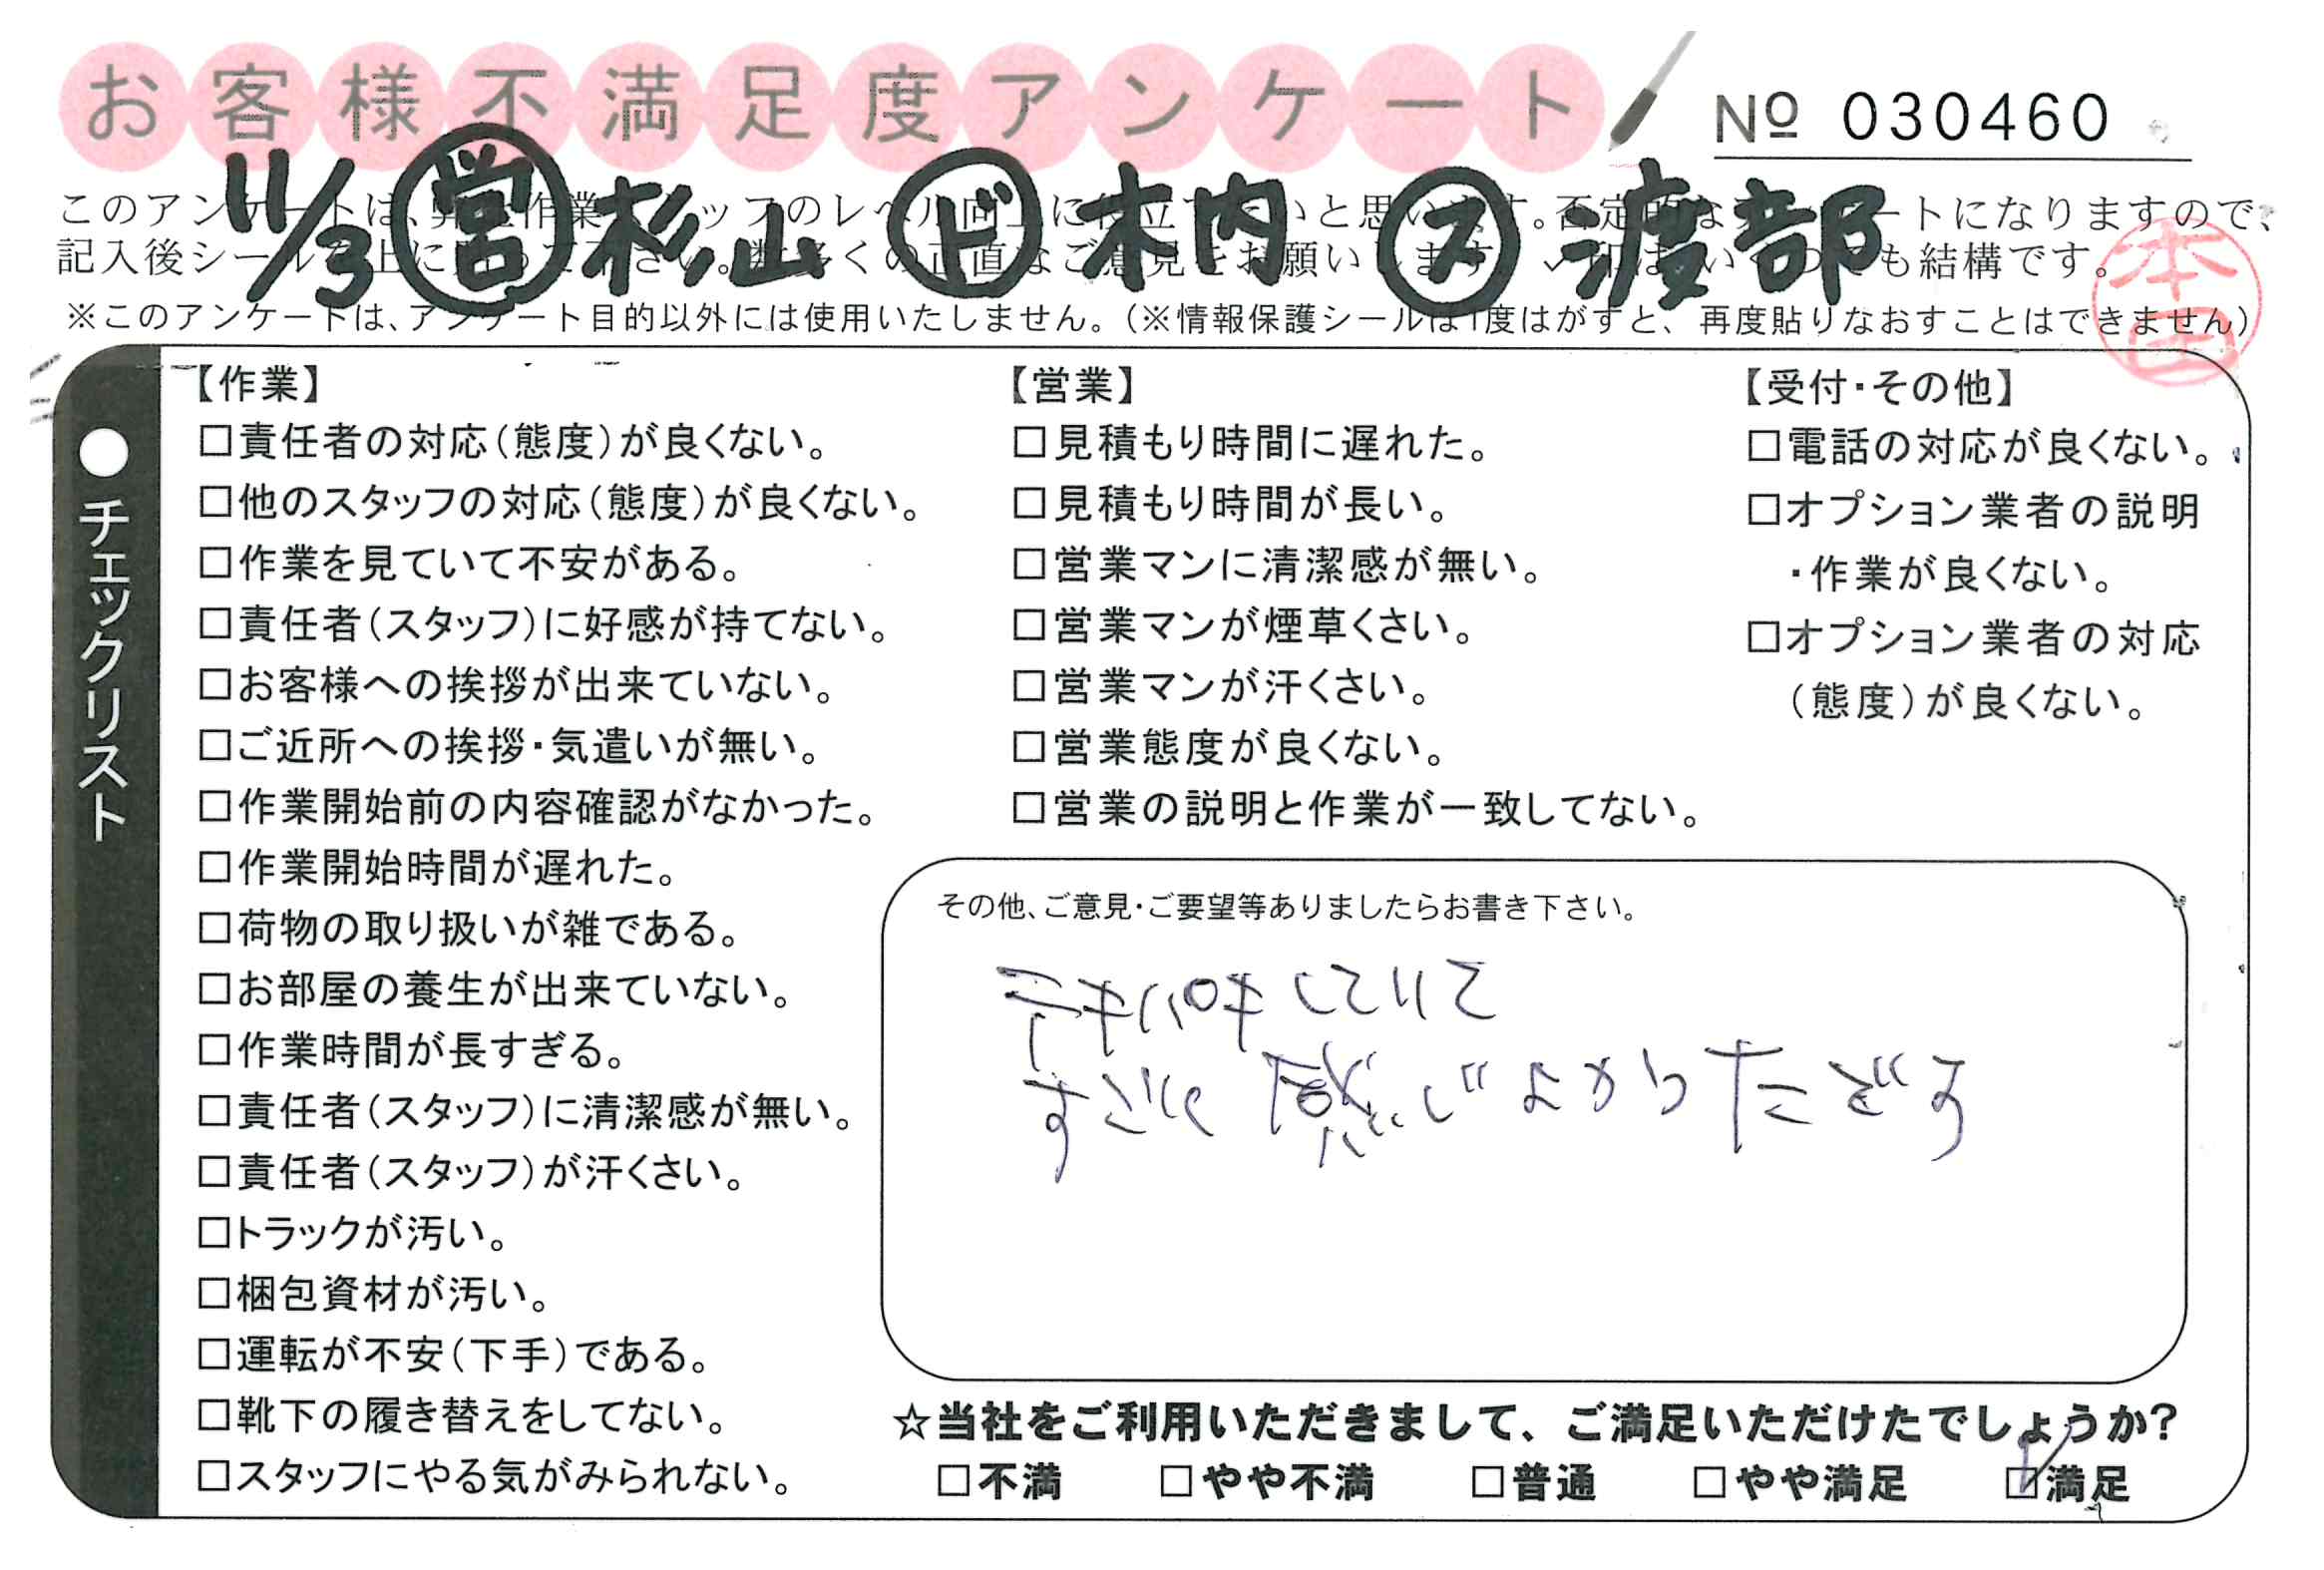 お客様不満足度アンケート
№ 030460
11/3 営 杉山 ド 木内 ス 渡部
このアンケートは、作業スタッフのレベル向上に役立てたいと思います。否定的なアンケートになりますので、
記入後シールを上に貼って下さい。数多くの正直なご意見をお願いします。✓印はいくつでも結構です。
※このアンケートは、アンケート目的以外には使用いたしません。(※情報保護シールは1度はがすと、再度貼りなおすことはできません)
●チェックリスト
【作業】
□責任者の対応(態度)が良くない。
□他のスタッフの対応(態度)が良くない。
□作業を見ていて不安がある。
□責任者(スタッフ)に好感が持てない。
□お客様への挨拶が出来ていない。
□ご近所への挨拶・気遣いが無い。
□作業開始前の内容確認がなかった。
□作業開始時間が遅れた。
□荷物の取り扱いが雑である。
□お部屋の養生が出来ていない。
□作業時間が長すぎる。
□責任者(スタッフ)に清潔感が無い。
□責任者(スタッフ)が汗くさい。
□トラックが汚い。
□梱包資材が汚い。
□運転が不安(下手)である。
□靴下の履き替えをしてない。
□スタッフにやる気がみられない。
【営業】
□見積もり時間に遅れた。
□見積もり時間が長い。
□営業マンに清潔感が無い。
□営業マンが煙草くさい。
□営業マンが汗くさい。
□営業態度が良くない。
□営業の説明と作業が一致してない。
【受付・その他】
□電話の対応が良くない。
□オプション業者の説明
・作業が良くない。
□オプション業者の対応
(態度)が良くない。
その他、ご意見・ご要望等ありましたらお書き下さい。
テキパキしていて
すごく感じよかったです
☆当社をご利用いただきまして、ご満足いただけたでしょうか?
□不満 □やや不満 □普通 □やや満足 ☑満足